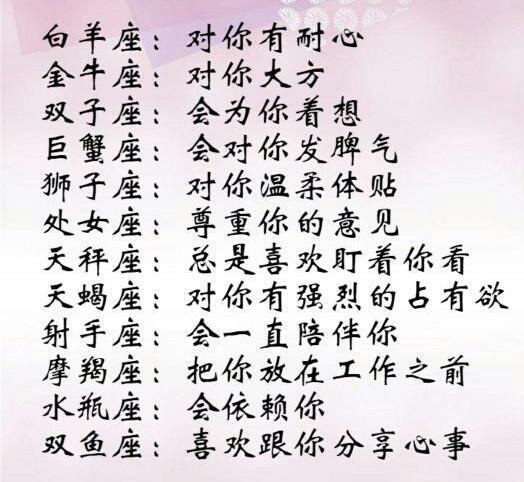 白羊座：对你有耐心
金牛座：对你大方
双子座：会为你着想
巨蟹座：会对你发脾气
狮子座：对你温柔体贴
处女座：尊重你的意见
天秤座：总是喜欢盯着你看
天蝎座：对你有强烈的占有欲
射手座：会一直陪伴你
摩羯座：把你放在工作之前
水瓶座：会依赖你
双鱼座：喜欢跟你分享心事